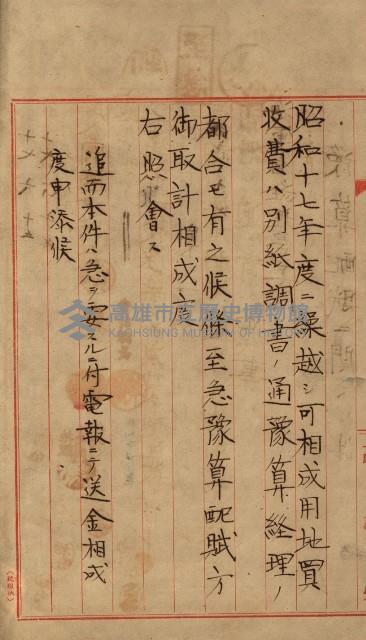 昭和十七年度ニ繰越シ可相成用地買
收費ハ別紙調書ノ通豫算経理ノ
都合モ有之候條至急豫算配賦方
御取計相成度
右照會ス
追而本件ハ急ヲ要スルニ付電報ニテ送金相成
度申添候
高雄市立歷史博物館
KAOHSIUNG MUSEUM OF HISTORY